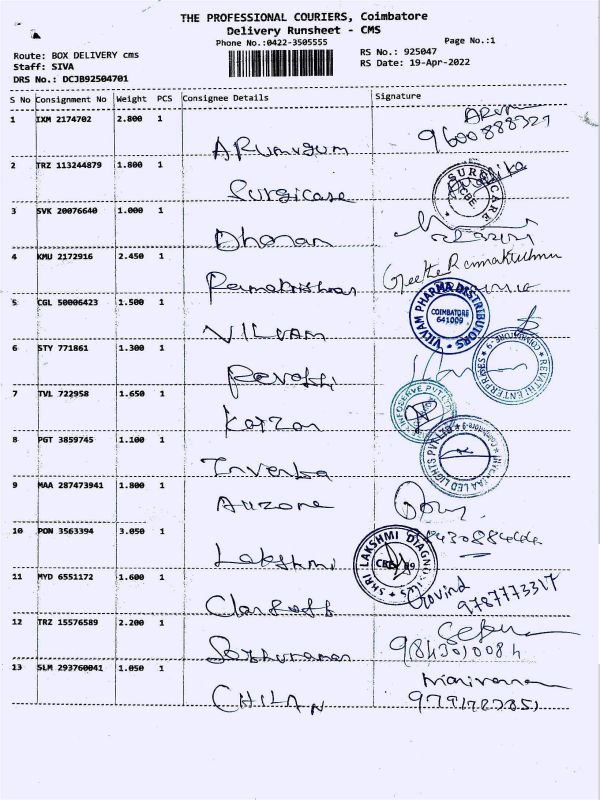 THE PROFESSIONAL COURIERS, Coimbatore
Delivery Runsheet - CMS
Phone No.:0422-3505555
Page No.:1
Route: BOX DELIVERY cms
Staff: SIVA
DRS No.: DCJB92504701
RS No.: 925047
RS Date: 19-Apr-2022
S No Consignment No Weight PCS Consignee Details Signature
1 IXM 2174702 2.800 1
Arun
9600888327
ARumugum
2 TRZ 113244879 1.800 1
SURGICARE CBE.
Surgicare
3 SVK 20076640 1.000 1
Dhanan
4 KMU 2172916 2.450 1
Geetha Ramakrishnan
Ramakrishnan
5 CGL 50006423 1.500 1
VILVAM PHARMA DISTRIBUTORS COIMBATORE 641009
VILVAM
6 STY 771861 1.300 1
REVATHI ENTERPRISES COIMBATORE-9
Revathi
7 TVL 722958 1.650 1
INFOSERVE PVT LTD
Kaizan
8 PGT 3859745 1.100 1
LED LIGHTS PVT LTD Coimbatore-9
9 MAA 287473941 1.800 1
Auzone
10 PON 3563394 3.050 1
SHRI LAKSHMI DIAGNO
Lakshmi
11 MYD 6551172 1.600 1
Govind
9787773317
12 TRZ 15576589 2.200 1
9843010084
13 SLM 293760041 1.050 1
Manivannan
CHILAN